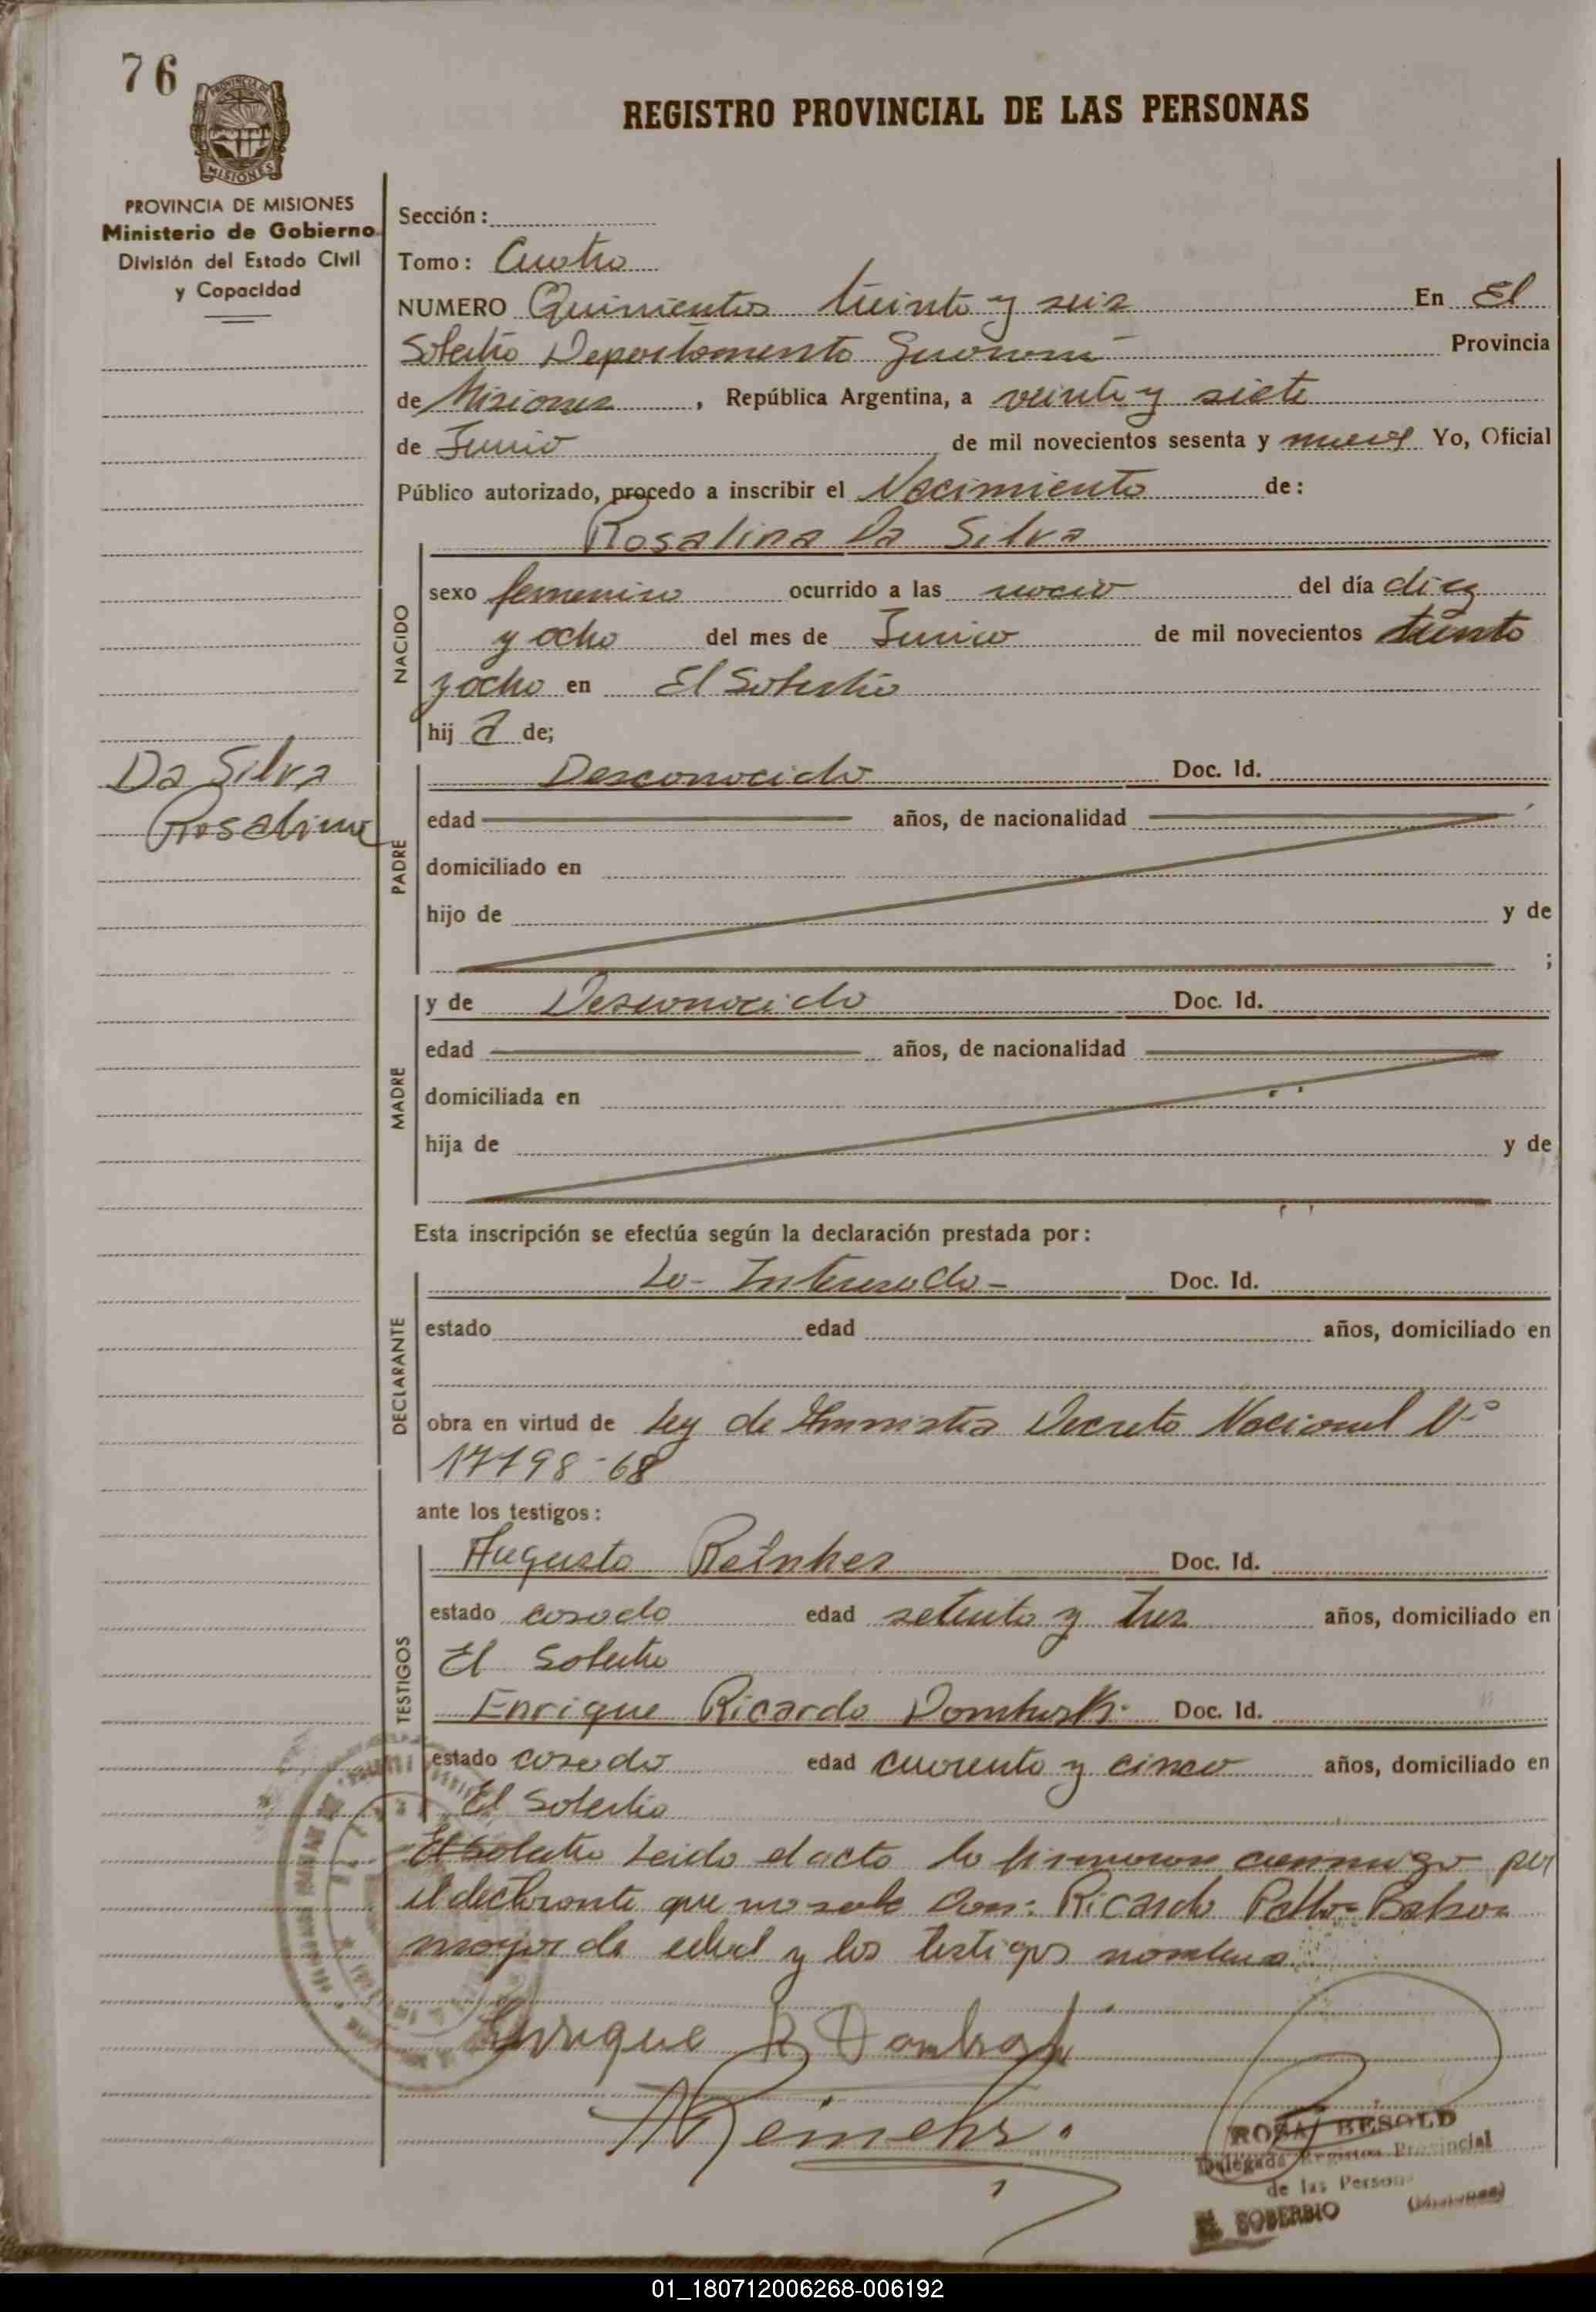 76
REGISTRO PROVINCIAL DE LAS PERSONAS
PROVINCIA DE MISIONES
MISIONES
PROVINCIA DE MISIONES
Ministerio de Gobierno
División del Estado Civil
y Capacidad
Sección:
Tomo: Cuatro
NUMERO Quinientos treinta y seis En El
Soberbio Departamento Guaraní Provincia
de Misiones, República Argentina, a veinte y siete
de Junio de mil novecientos sesenta y nueve Yo, Oficial
Público autorizado, procedo a inscribir el Nacimiento de:
Rosalina Da Silva
NACIDO
sexo femenino ocurrido a las del día diez
y ocho del mes de Junio de mil novecientos treinta
y ocho en El Soberbio
hij a de;
Da Silva
Rosalina
PADRE
Desconocido Doc. Id.
edad años, de nacionalidad
domiciliado en
hijo de y de
;
MADRE
y de Desconocido Doc. Id.
edad años, de nacionalidad
domiciliada en
hija de y de
Esta inscripción se efectúa según la declaración prestada por:
DECLARANTE
La - Interesada - Doc. Id.
estado edad años, domiciliado en
obra en virtud de Ley de Amnistia Decreto Nacional Nº
17198-68
ante los testigos:
TESTIGOS
Augusto Doc. Id.
estado casado edad setenta y tres años, domiciliado en
El Soberbio
Enrique Ricardo Doc. Id.
estado casado edad cuarenta y cinco años, domiciliado en
El Soberbio
El Soberbio Leido el acta la firmaron conmigo por
el declarante que no sabe Don: Ricardo
mayor de edad y los testigos
Enrique R
ROSA BESOLD
Delegada Registro Provincial
de las Persona
EL SOBERBIO (Misiones)
01_180712006268-006192